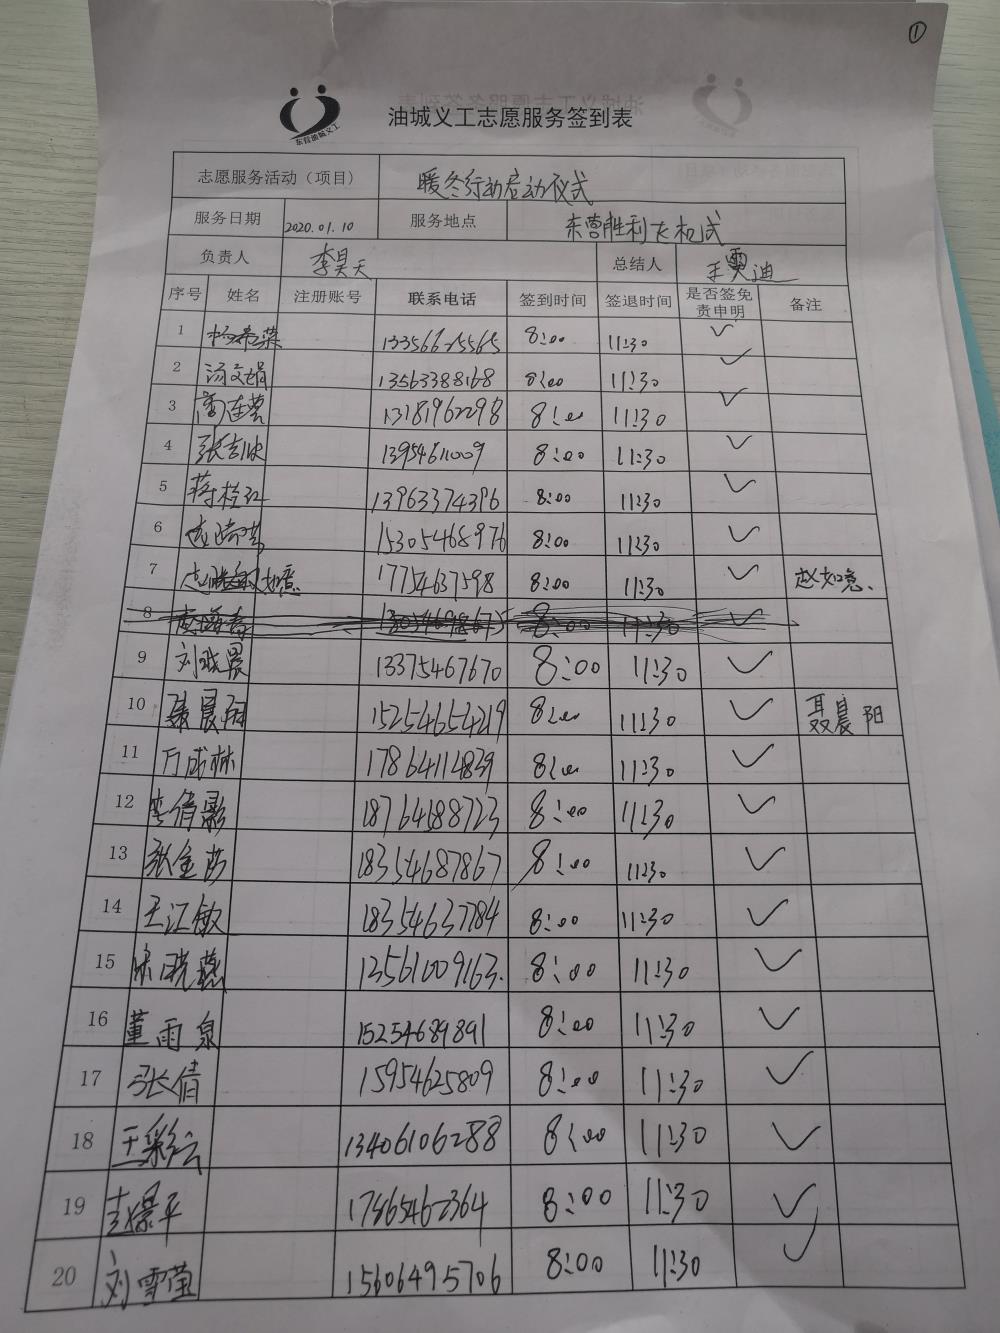 ①
东营油城义工
油城义工志愿服务签到表
志愿服务活动（项目） 暖冬行动启动仪式
服务日期 2020.01.10 服务地点 东营胜利大机式
负责人 李昊天 总结人 王 迪
序号 姓名 注册账号 联系电话 签到时间 签退时间 是否签免责申明 备注
1 杨 荣 8:00 11:30 ✓
2 汤文娟 13563388168 8:00 11:30 ✓
3 蔺连营 13181962298 8:00 11:30 ✓
4 张 13954611009 8:00 11:30 ✓
5 蒋桂红 13963374396 8:00 11:30 ✓
6 15305468976 8:00 11:30 ✓
7 如意 17754637598 8:00 11:30 ✓ 赵如意、
8 8:00 11:30 ✓
9 刘晓晨 13375467670 8:00 11:30 ✓
10 聂晨阳 15254654219 8:00 11:30 ✓ 聂晨阳
11 万成林 17864114839 8:00 11:30 ✓
12 李倩影 18764188723 8:00 11:30 ✓
13 张金莎 18354687867 8:00 11:30 ✓
14 王江敏 18354637784 8:00 11:30 ✓
15 宋晓燕 13561009163. 8:00 11:30 ✓
16 董雨泉 15254689891 8:00 11:30 ✓
17 张倩 15954625809 8:00 11:30 ✓
18 王彩云 13406106288 8:00 11:30 ✓
19 景平 17865462364 8:00 11:30 ✓
20 刘雪莹 15606495706 8:00 11:30 ✓